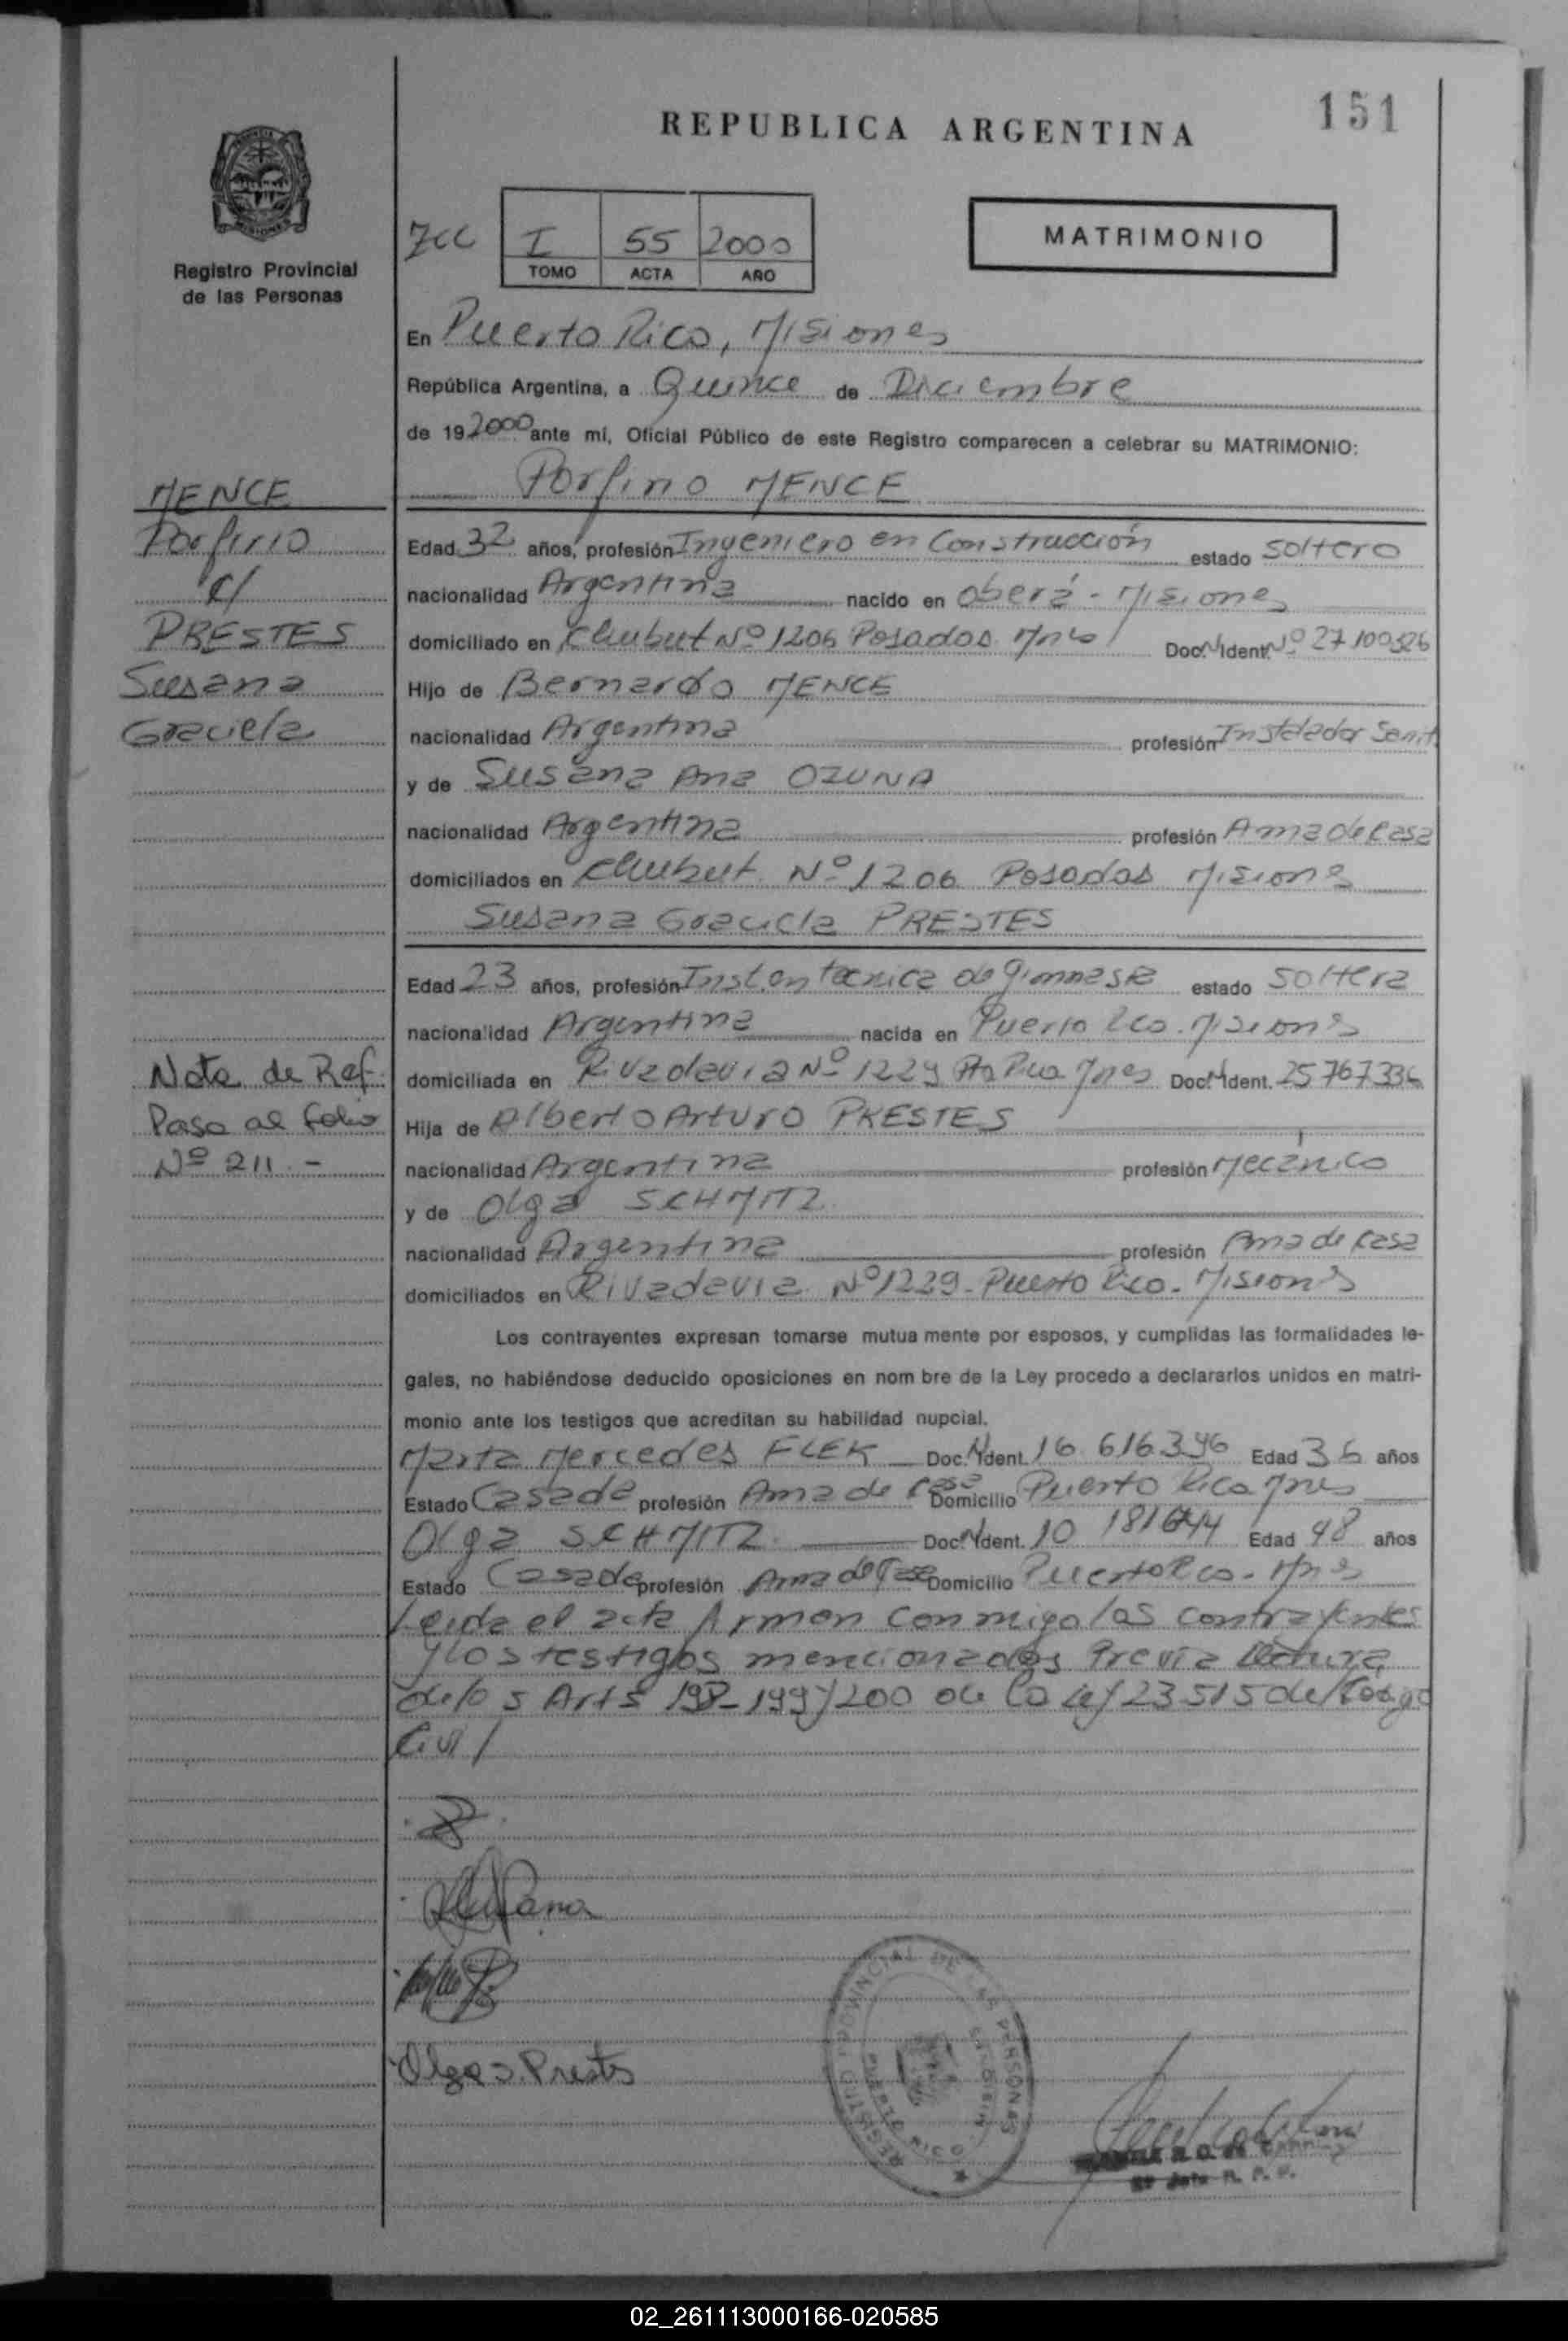 151
REPUBLICA ARGENTINA
MISIONES
Registro Provincial
de las Personas
I 55 2000
TOMO ACTA AÑO
MATRIMONIO
En Puerto Rico, Misiones
República Argentina, a Quince de Diciembre
de 19 2000 ante mí, Oficial Público de este Registro comparecen a celebrar su MATRIMONIO:
Porfirio MENCE
MENCE
Porfirio
c/
PRESTES
Susana
Graciela
Edad 32 años, profesión Ingeniero en Construcción estado soltero
nacionalidad Argentina nacido en Oberá - Misiones
domiciliado en Chubut Nº 1206 Posadas Mnes Doc. N. Ident. Nº 27 100526
Hijo de Bernardo MENCE
nacionalidad Argentina profesión Instalador Sanit.
y de Susana Ana OZUNA
nacionalidad Argentina profesión Ama de Casa
domiciliados en Chubut Nº 1206 Posadas Misiones
Susana Graciela PRESTES
Edad 23 años, profesión Inst. en tecnica de gimnasia estado soltera
nacionalidad Argentina nacida en Puerto Rco. Misiones
domiciliada en Rivadavia Nº 1229 Pto Rico Mnes Doc. N. Ident. 25 767.336
Hija de Alberto Arturo PRESTES
nacionalidad Argentina profesión Mecánico
y de Olga SCHMITZ
nacionalidad Argentina profesión Ama de Casa
domiciliados en Rivadavia Nº 1229 - Puerto Rico - Misiones
Nota de Ref.
Pasa al folio
Nº 211.-
Los contrayentes expresan tomarse mutua mente por esposos, y cumplidas las formalidades le-
gales, no habiéndose deducido oposiciones en nom bre de la Ley procedo a declararlos unidos en matri-
monio ante los testigos que acreditan su habilidad nupcial.
Marta Mercedes FLEK Doc. N. Ident. 16 616.396 Edad 36 años
Estado Casada profesión Ama de Casa Domicilio Puerto Rico Mnes
Olga SCHMITZ Doc. N. Ident. 10 181644 Edad 48 años
Estado Casada profesión Ama de Casa Domicilio Puerto Rco - Mnes
Leida el acta firman conmigo los contrayentes
y los testigos mencionados Previa lectura
de los Arts 198-199 y 200 de la Ley 23515 del Codigo
Civil
Olga S Prestes
REGISTRO PROVINCIAL DE LAS PERSONAS
02_261113000166-020585